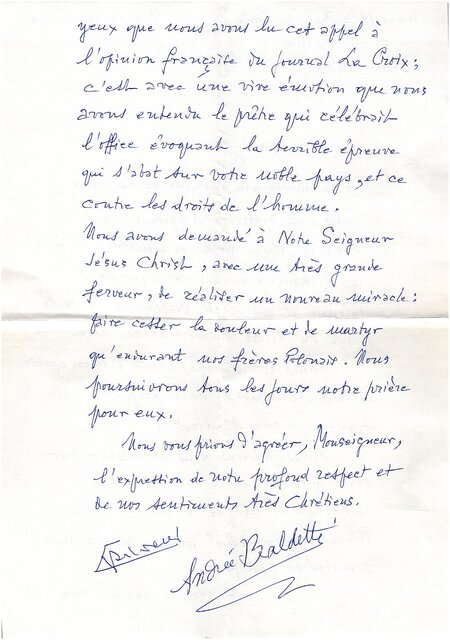 yeux que nous avons lu cet appel à
l'opinion française du Journal La Croix ;
c'est avec une vive émotion que nous
avons entendu le prêtre qui célébrait
l'office évoquant la terrible épreuve
qui s'abat sur votre noble pays, et ce
contre les droits de l'homme.
Nous avons demandé à Notre Seigneur
Jésus Christ, avec une très grande
ferveur, de réaliser un nouveau miracle :
faire cesser la douleur et de martyr
qu'endurant nos frères Polonais. Nous
poursuivrons tous les jours notre prière
pour eux.
Nous vous prions d'agréer, Monseigneur,
l'expression de notre profond respect et
de nos sentiments très Chrétiens.
Andrée